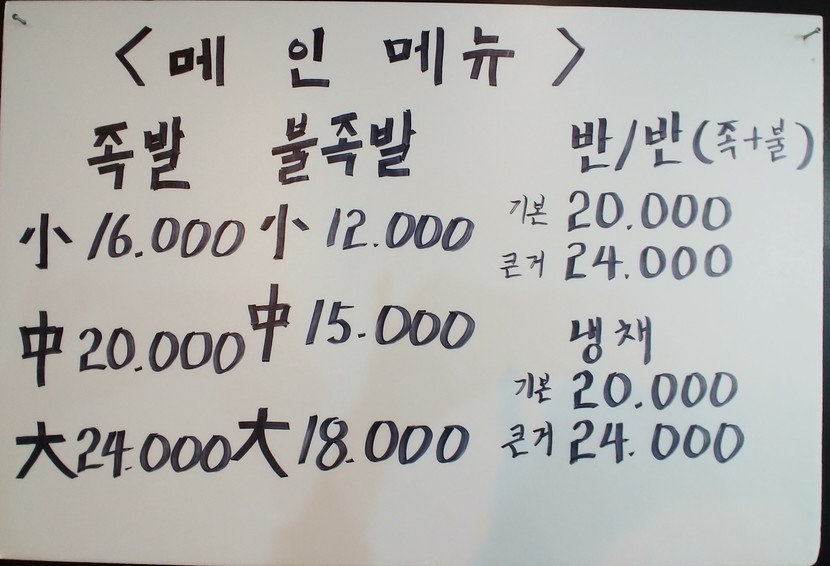 <메인 메뉴>
족발 불족발 반/반(족+불)
小 16.000 小 12.000 기본 20.000
큰거 24.000
中 20.000 中 15.000 냉채
기본 20.000
大 24.000 大 18.000 큰거 24.000